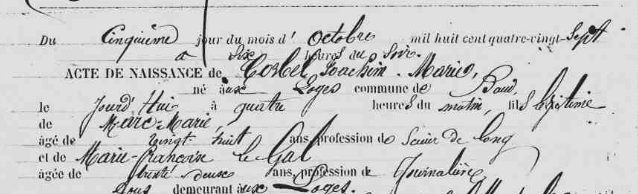 Du Cinquième jour du mois d'octobre mil huit cent quatre-vingt-Sept
à Six heures du Soir.
ACTE DE NAISSANCE de Corbel Joachim Marie,
né aux Loges commune de Baud,
le Jourd'Hui à quatre heures du matin, fils légitime
de Marc-Marie
âgé de vingt huit ans, profession de Scieur de long
et de Marie-Françoise le Gal
âgée de trente deux ans, profession de Journalière
demeurant aux Loges.